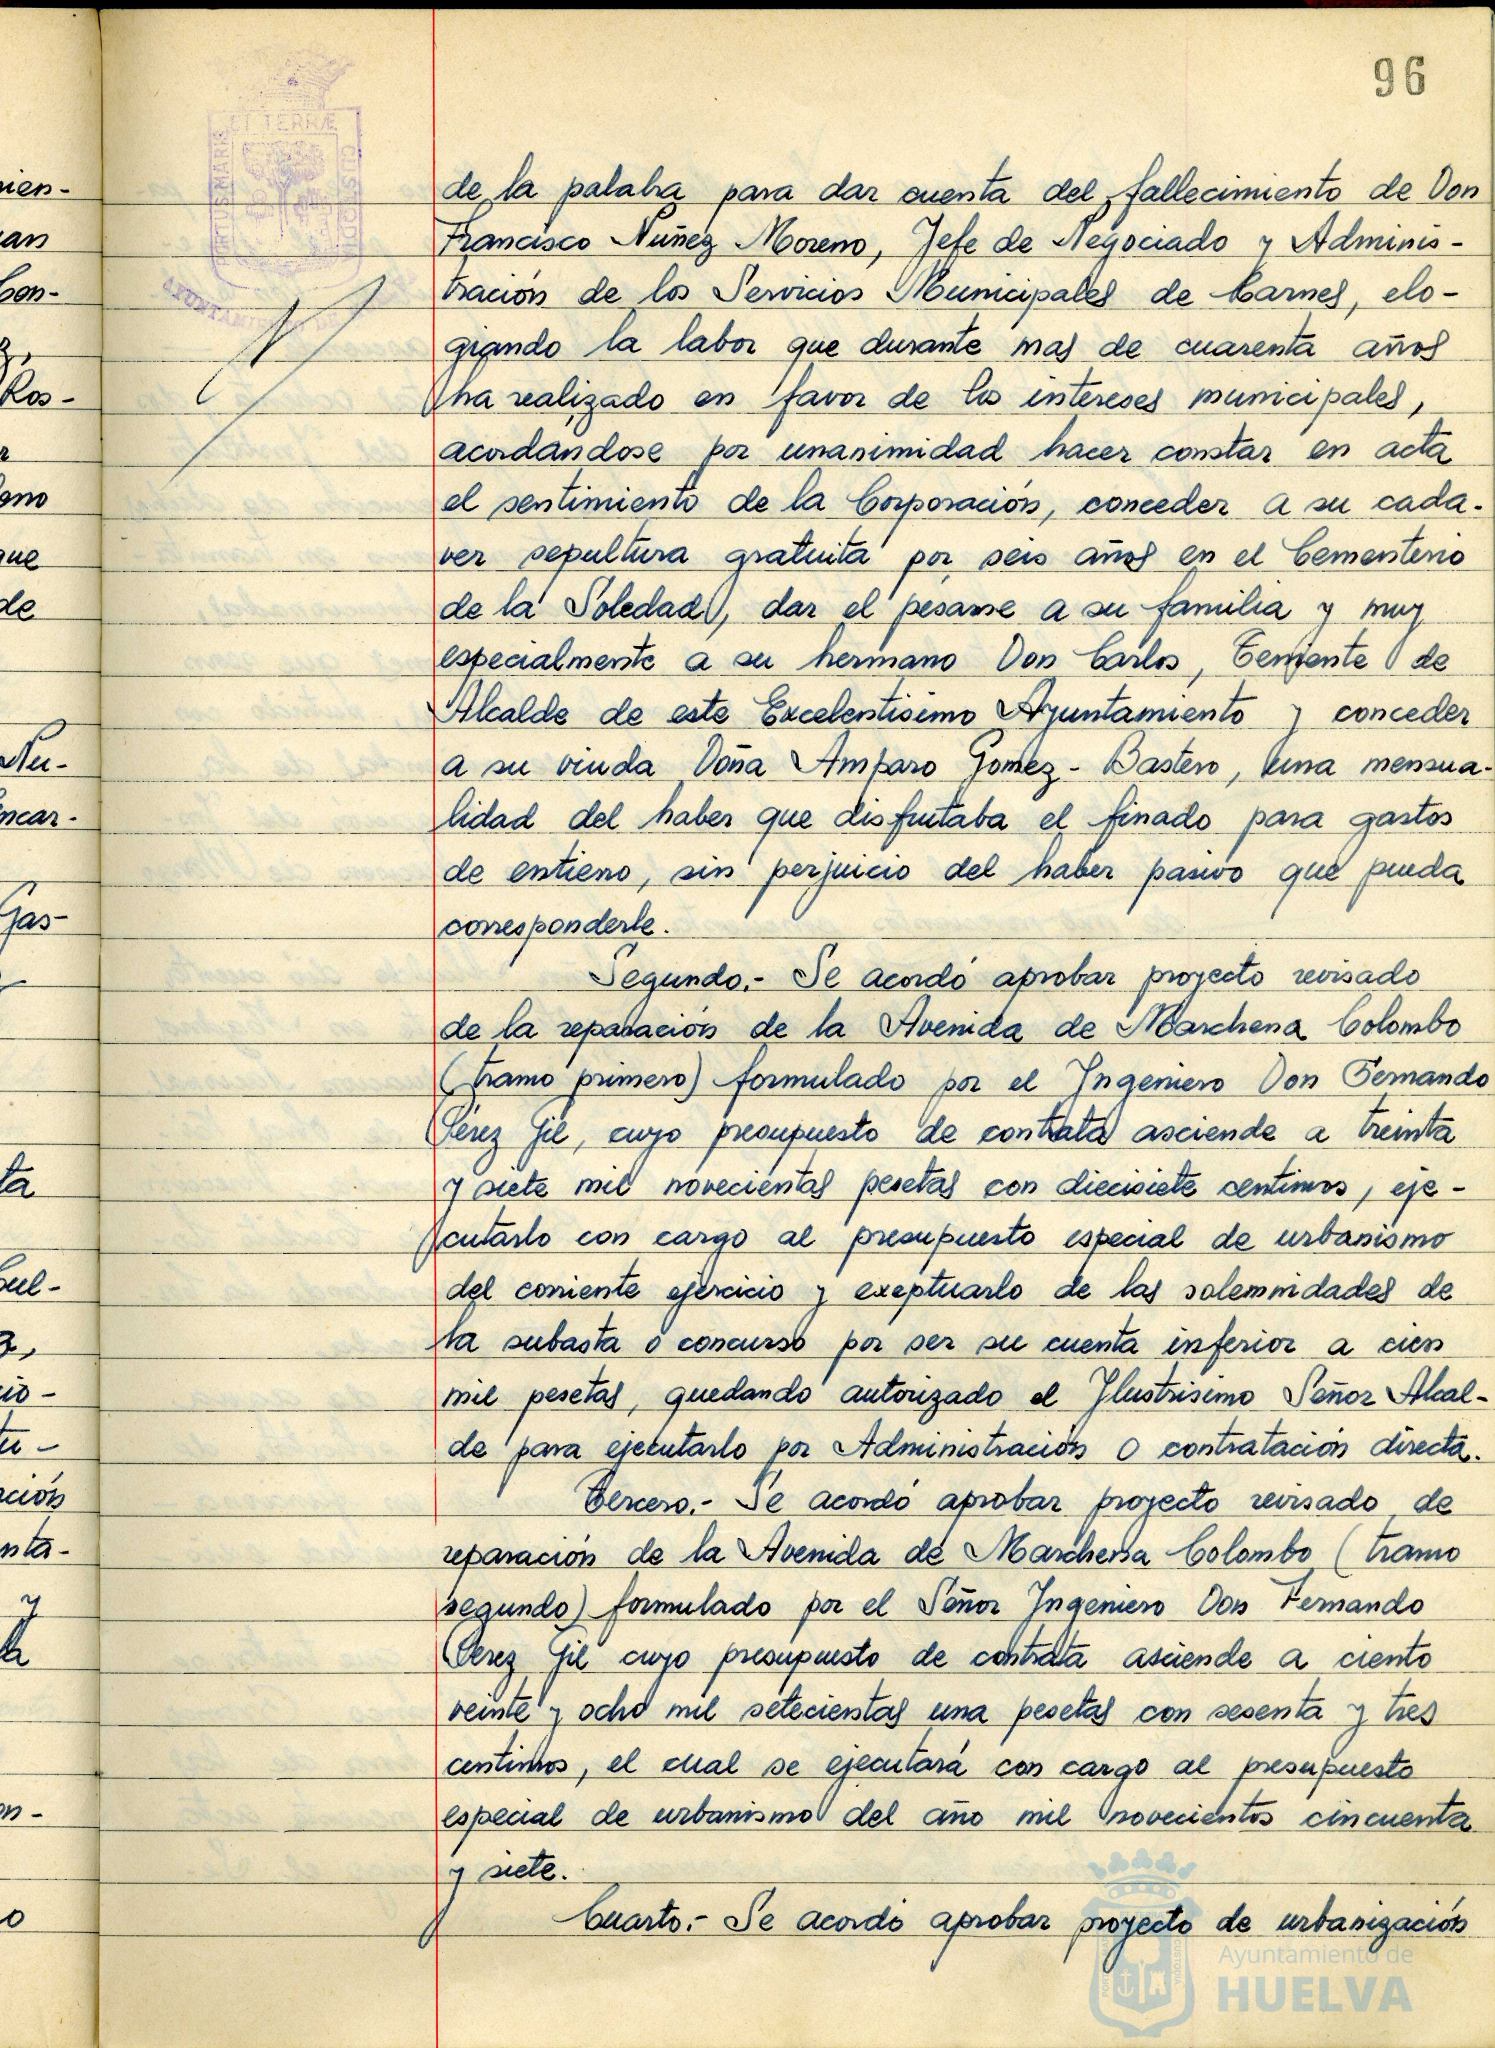 96
PORTUS MARIS
ET TERRÆ
CUSTODIA
AYUNTAMIENTO DE
de la palabra para dar cuenta del fallecimiento de Don
Francisco Nuñez Moreno, Jefe de Negociado y Adminis-
tración de los Servicios Municipales de Carnes, elo-
giando la labor que durante mas de cuarenta años
ha realizado en favor de los intereses municipales,
acordándose por unanimidad hacer constar en acta
el sentimiento de la Corporación, conceder a su cada-
ver sepultura gratuita por seis años en el Cementerio
de la Soledad, dar el pésame a su familia y muy
especialmente a su hermano Don Carlos, Teniente de
Alcalde de este Excelentisimo Ayuntamiento y conceder
a su viuda Doña Amparo Gomez-Bastero, una mensua-
lidad del haber que disfrutaba el finado para gastos
de entierro, sin perjuicio del haber pasivo que pueda
corresponderle.
Segundo.- Se acordó aprobar proyecto revisado
de la reparación de la Avenida de Marchena Colombo
(tramo primero) formulado por el Ingeniero Don Fernando
Pérez Gil, cuyo presupuesto de contrata asciende a treinta
y siete mil novecientas pesetas con diecisiete centimos, eje-
cutarlo con cargo al presupuesto especial de urbanismo
del corriente ejercicio y exeptuarlo de las solemnidades de
la subasta o concurso por ser su cuenta inferior a cien
mil pesetas, quedando autorizado el Ilustrisimo Señor Alcal-
de para ejecutarlo por Administración o contratación directa.
Tercero.- Se acordó aprobar proyecto revisado de
reparación de la Avenida de Marchena Colombo (tramo
segundo) formulado por el Señor Ingeniero Don Fernando
Pérez Gil cuyo presupuesto de contrata asciende a ciento
veinte y ocho mil setecientas una pesetas con sesenta y tres
centimos, el cual se ejecutará con cargo al presupuesto
especial de urbanismo del año mil novecientos cincuenta
y siete.
Cuarto.- Se acordó aprobar proyecto de urbanización
Ayuntamiento de
HUELVA